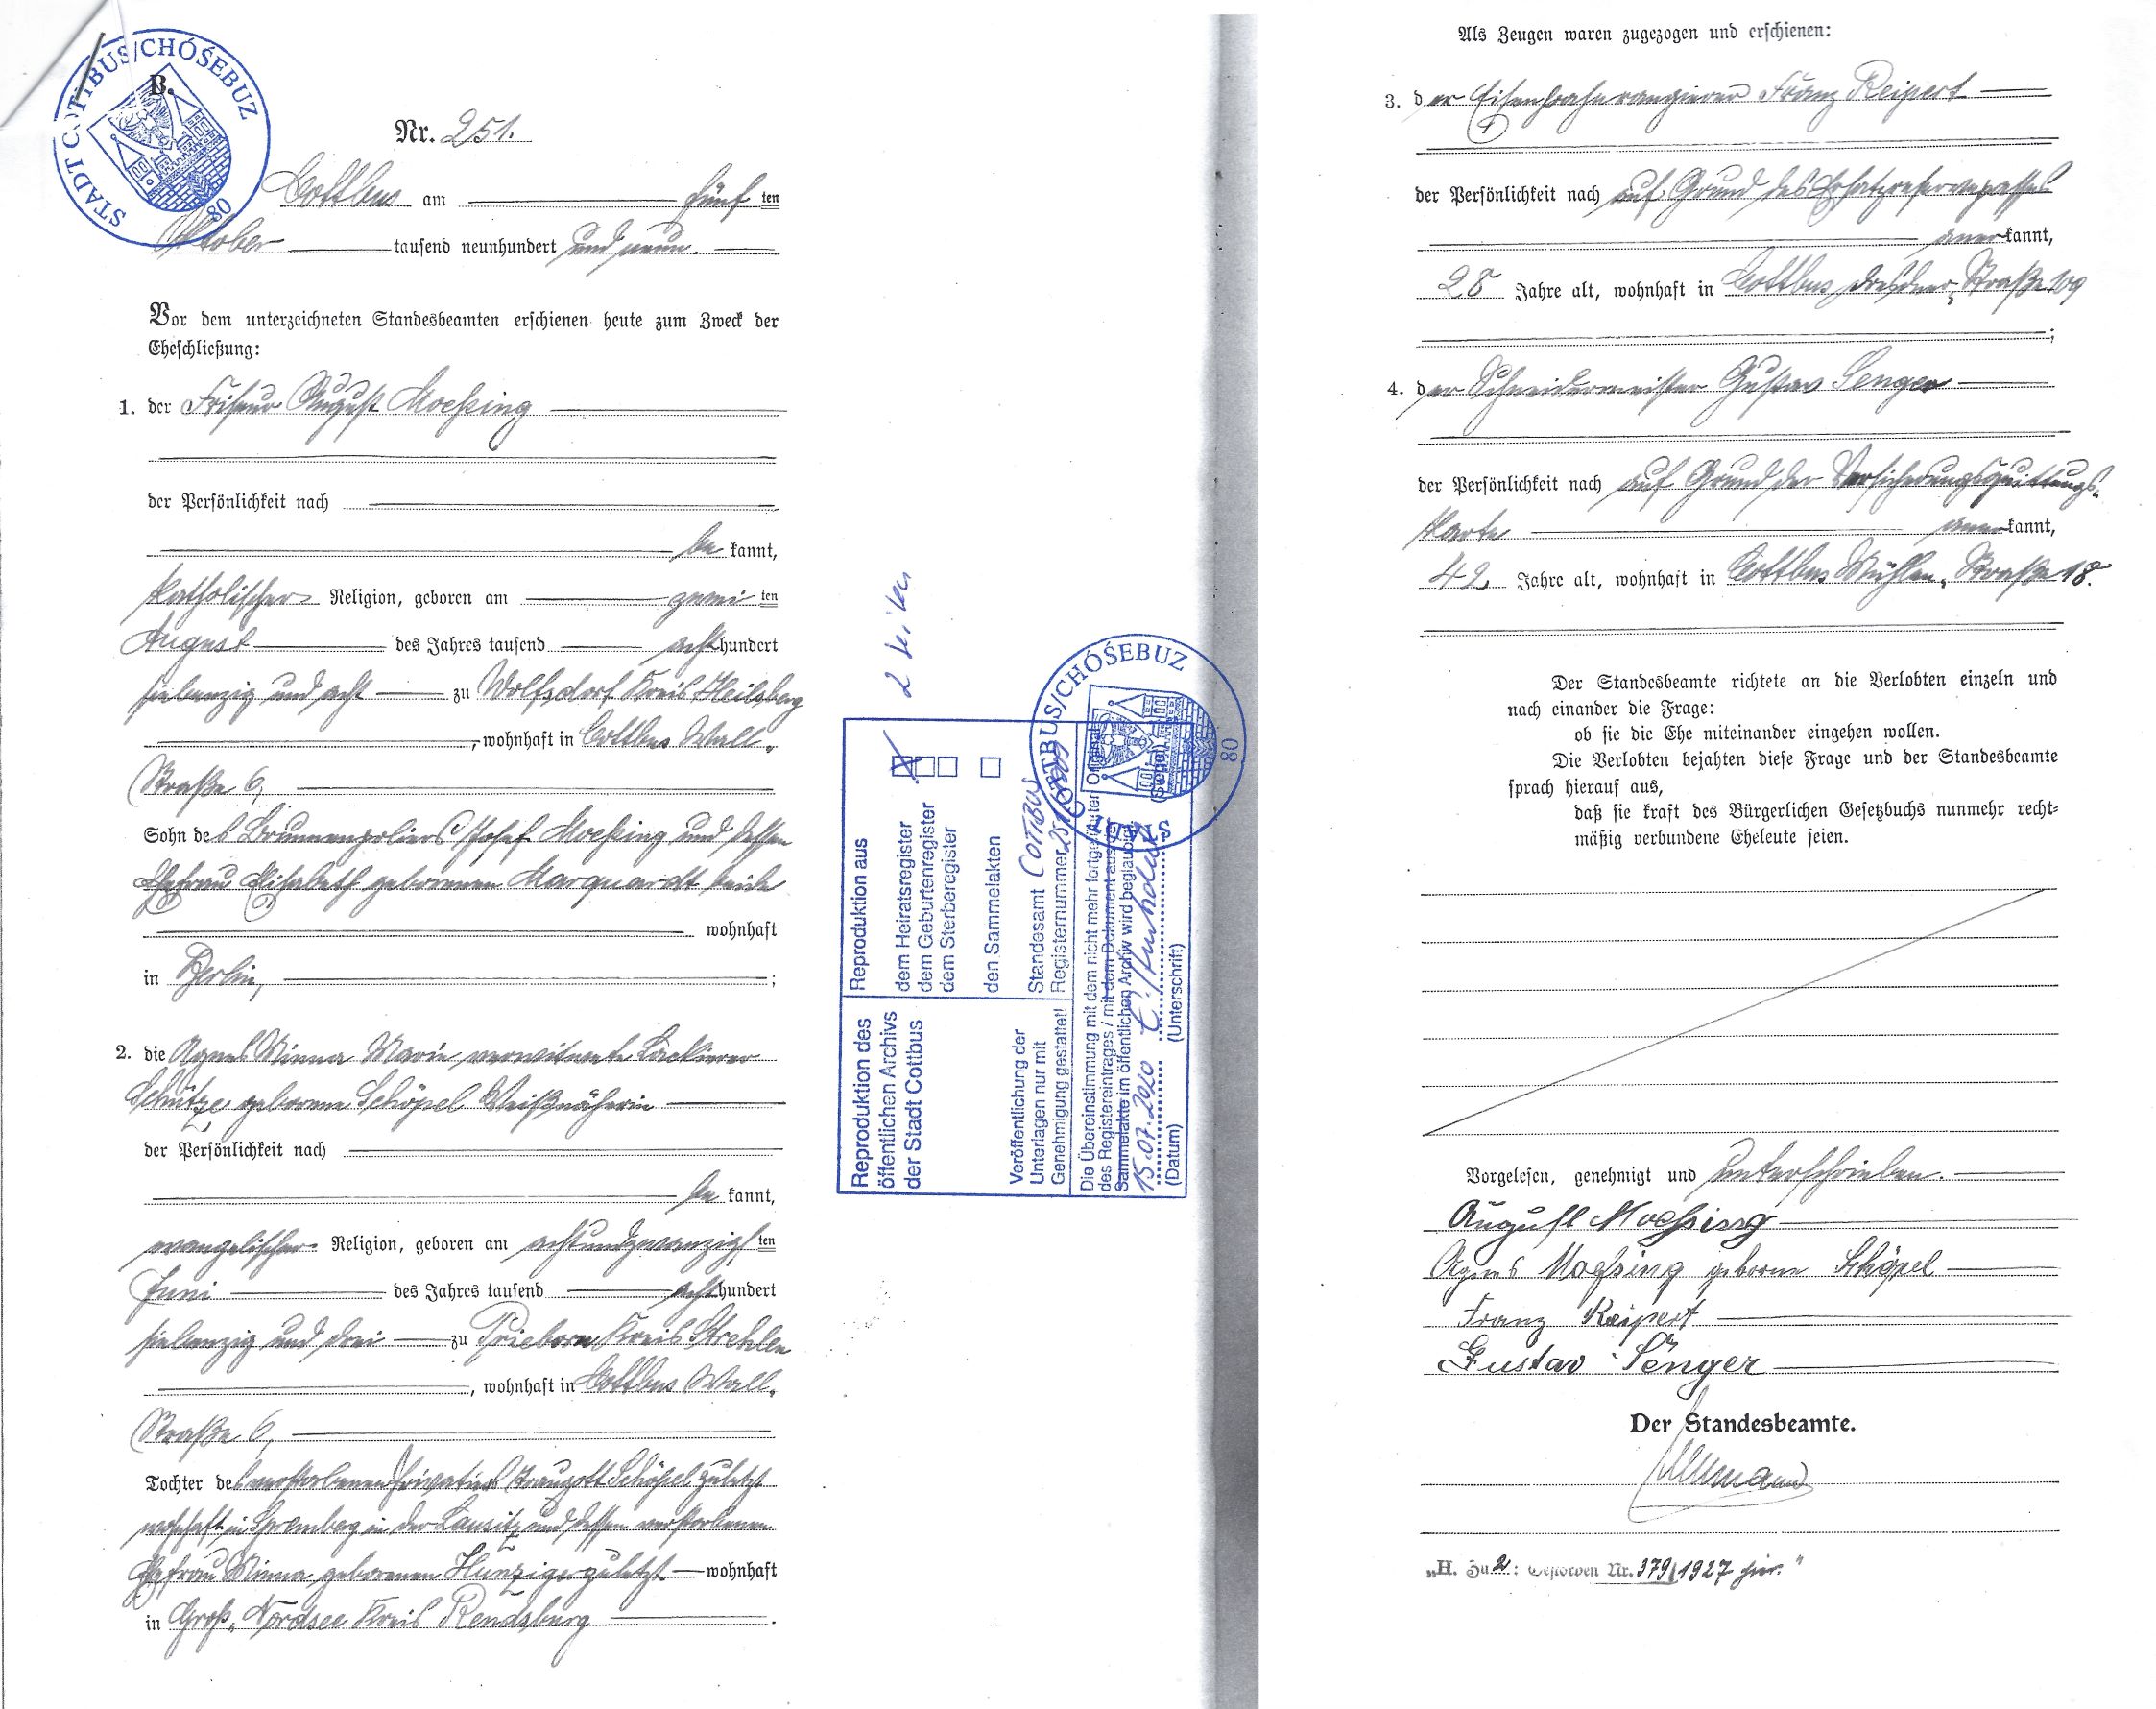 STADT COTTBUS/CHÓŚEBUZ
80
B.
Nr. 251.
Cottbus am fünf ten
Oktober tausend neunhundert und neun.
Vor dem unterzeichneten Standesbeamten erschienen heute zum Zweck der
Eheschließung:
1. der Friseur August Moeßing
der Persönlichkeit nach
be kannt,
katholischer Religion, geboren am zwei ten
August des Jahres tausend acht hundert
siebenzig und acht zu Wolfsdorf Kreis Heilsberg
, wohnhaft in Cottbus Wall-
Straße 6,
Sohn des Brunnenpoliers Josef Moeßing und dessen
Ehefrau Elisabeth geborenen Marquardt beide
wohnhaft
in Berlin, ;
2. die Agnes Minna Marie verwitwete Lackierer
Schütze geborene Schöpel Weißnäherin
der Persönlichkeit nach
be kannt,
evangelischer Religion, geboren am achtundzwanzig ten
Juni des Jahres tausend acht hundert
siebenzig und drei zu Prieborn Kreis Strehlen
, wohnhaft in Cottbus Wall-
Straße 6,
Tochter des verstorbenen Privatiers Traugott Schöpel zuletzt
wohnhaft in Spremberg in der Lausitz und dessen verstorbenen
Ehefrau Minna geborenen Hunziger zuletzt wohnhaft
in Groß-Nordsee Kreis Rendsburg .
2 Seiten
Reproduktion des
öffentlichen Archivs
der Stadt Cottbus
Veröffentlichung der
Unterlagen nur mit
Genehmigung gestattet!
Reproduktion aus
dem Heiratsregister
dem Geburtenregister
dem Sterberegister
den Sammelakten
Standesamt COTTBUS
Registernummer 251/1909
Die Übereinstimmung mit dem nicht mehr fortgeführten Original
des Registereintrages / mit dem Dokument aus der
Sammelakte im öffentlichen Archiv wird beglaubigt.
15.07.2020
(Datum)
(Unterschrift)
(Siegel)
STADT COTTBUS/CHÓŚEBUZ
80
Als Zeugen waren zugezogen und erschienen:
3. der Eisenbahnrangierer Franz Reipert
der Persönlichkeit nach auf Grund des Ersatzreservepasses
aner kannt,
28 Jahre alt, wohnhaft in Cottbus Dresdner-Straße 109
;
4. der Schneidermeister Gustav Senger
der Persönlichkeit nach auf Grund der Versicherungsquittungs-
karte aner kannt,
42 Jahre alt, wohnhaft in Cottbus Mühlen-Straße 18.
Der Standesbeamte richtete an die Verlobten einzeln und
nach einander die Frage:
ob sie die Ehe miteinander eingehen wollen.
Die Verlobten bejahten diese Frage und der Standesbeamte
sprach hierauf aus,
daß sie kraft des Bürgerlichen Gesetzbuchs nunmehr recht-
mäßig verbundene Eheleute seien.
Vorgelesen, genehmigt und unterschrieben.
August Moeßing
Agnes Moeßing geborene Schöpel
Franz Reipert
Gustav Senger
Der Standesbeamte.
„H. Zu 2: Gestorben Nr. 379/1927 hier."